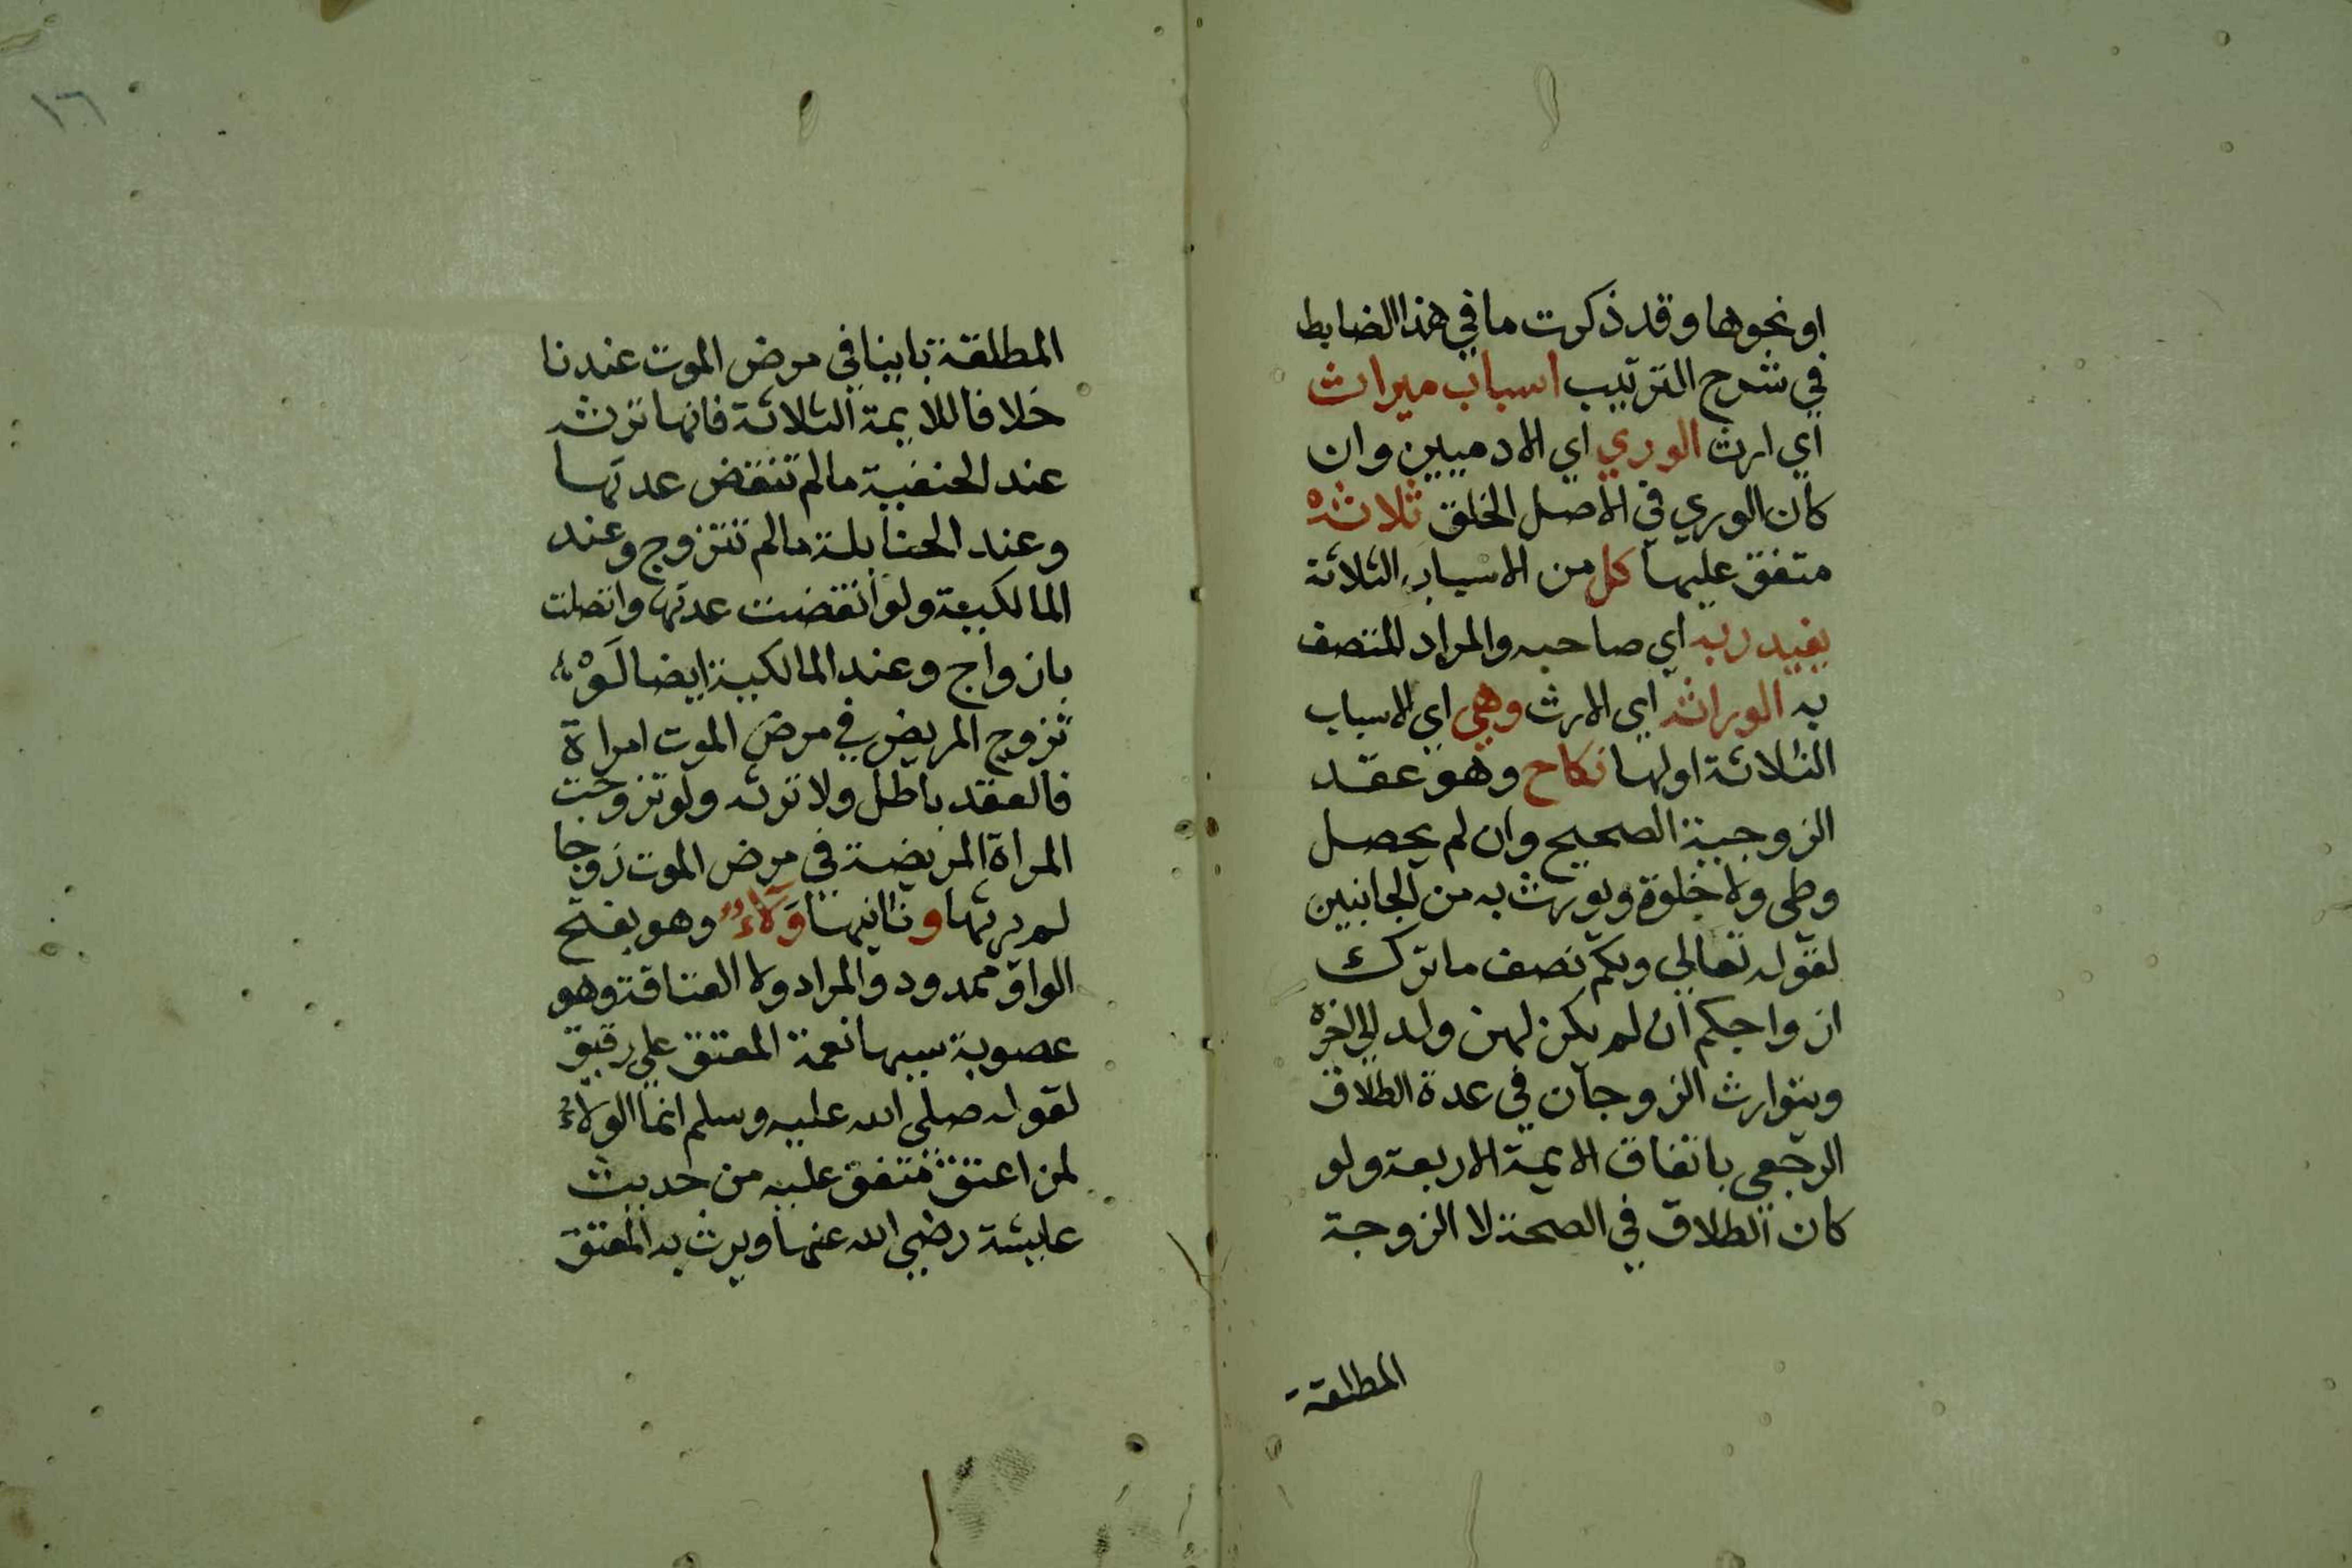 او نحوها وقد ذكرت ما في هذا الضابط
في شرح الترتيب اسباب ميراث
اي ارث الوري اي الادميين وان
كان الوري في الاصل الخلق ثلاثه
متفق عليها كل من الاسباب الثلاثة
يفيد ربه اي صاحبه والمراد المتصف
به الوراثه اي الارث وهي اي الاسباب
الثلاثة اولها نكاح وهو عقد
الزوجية الصحيح وان لم يحصل
وطي ولا خلوة ويورث به من الجانبين
لقوله تعالي ولكم نصف ما ترك
ازواجكم ان لم يكن لهن ولد الي اخره
ويتوارث الزوجان في عدة الطلاق
الرجعي باتفاق الايمة الاربعة ولو
كان الطلاق في الصحة لا الزوجة
المطلقة
١٦
المطلقة باينا في مرض الموت عندنا
خلافا للايمة الثلاثة فانها ترث
عند الحنفية مالم تنقض عدتها
وعند الحنابلة مالم تتزوج وعند
المالكية ولو انقضت عدتها واتصلت
بازواج وعند المالكية ايضا لَوْ
تزوج المريض في مرض الموت امراة
فالعقد باطل ولا ترثه ولو تزوجت
المراة المريضة في مرض الموت زوجا
لم يرثها وثانيها وَلَاءٌ وهو بفتح
الواو ممدود والمراد ولا العتاقة وهو
عصوبة سببها نعمة المعتق علي رقيق
لقوله صلي الله عليه وسلم انما الولاءُ
لمن اعتق متفق عليه من حديث
عايشة رضي الله عنها ويرث به المعتق